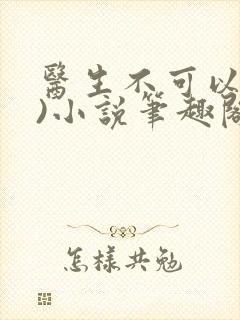 醫生不可以
)小說筆趣閣
怎樣共勉